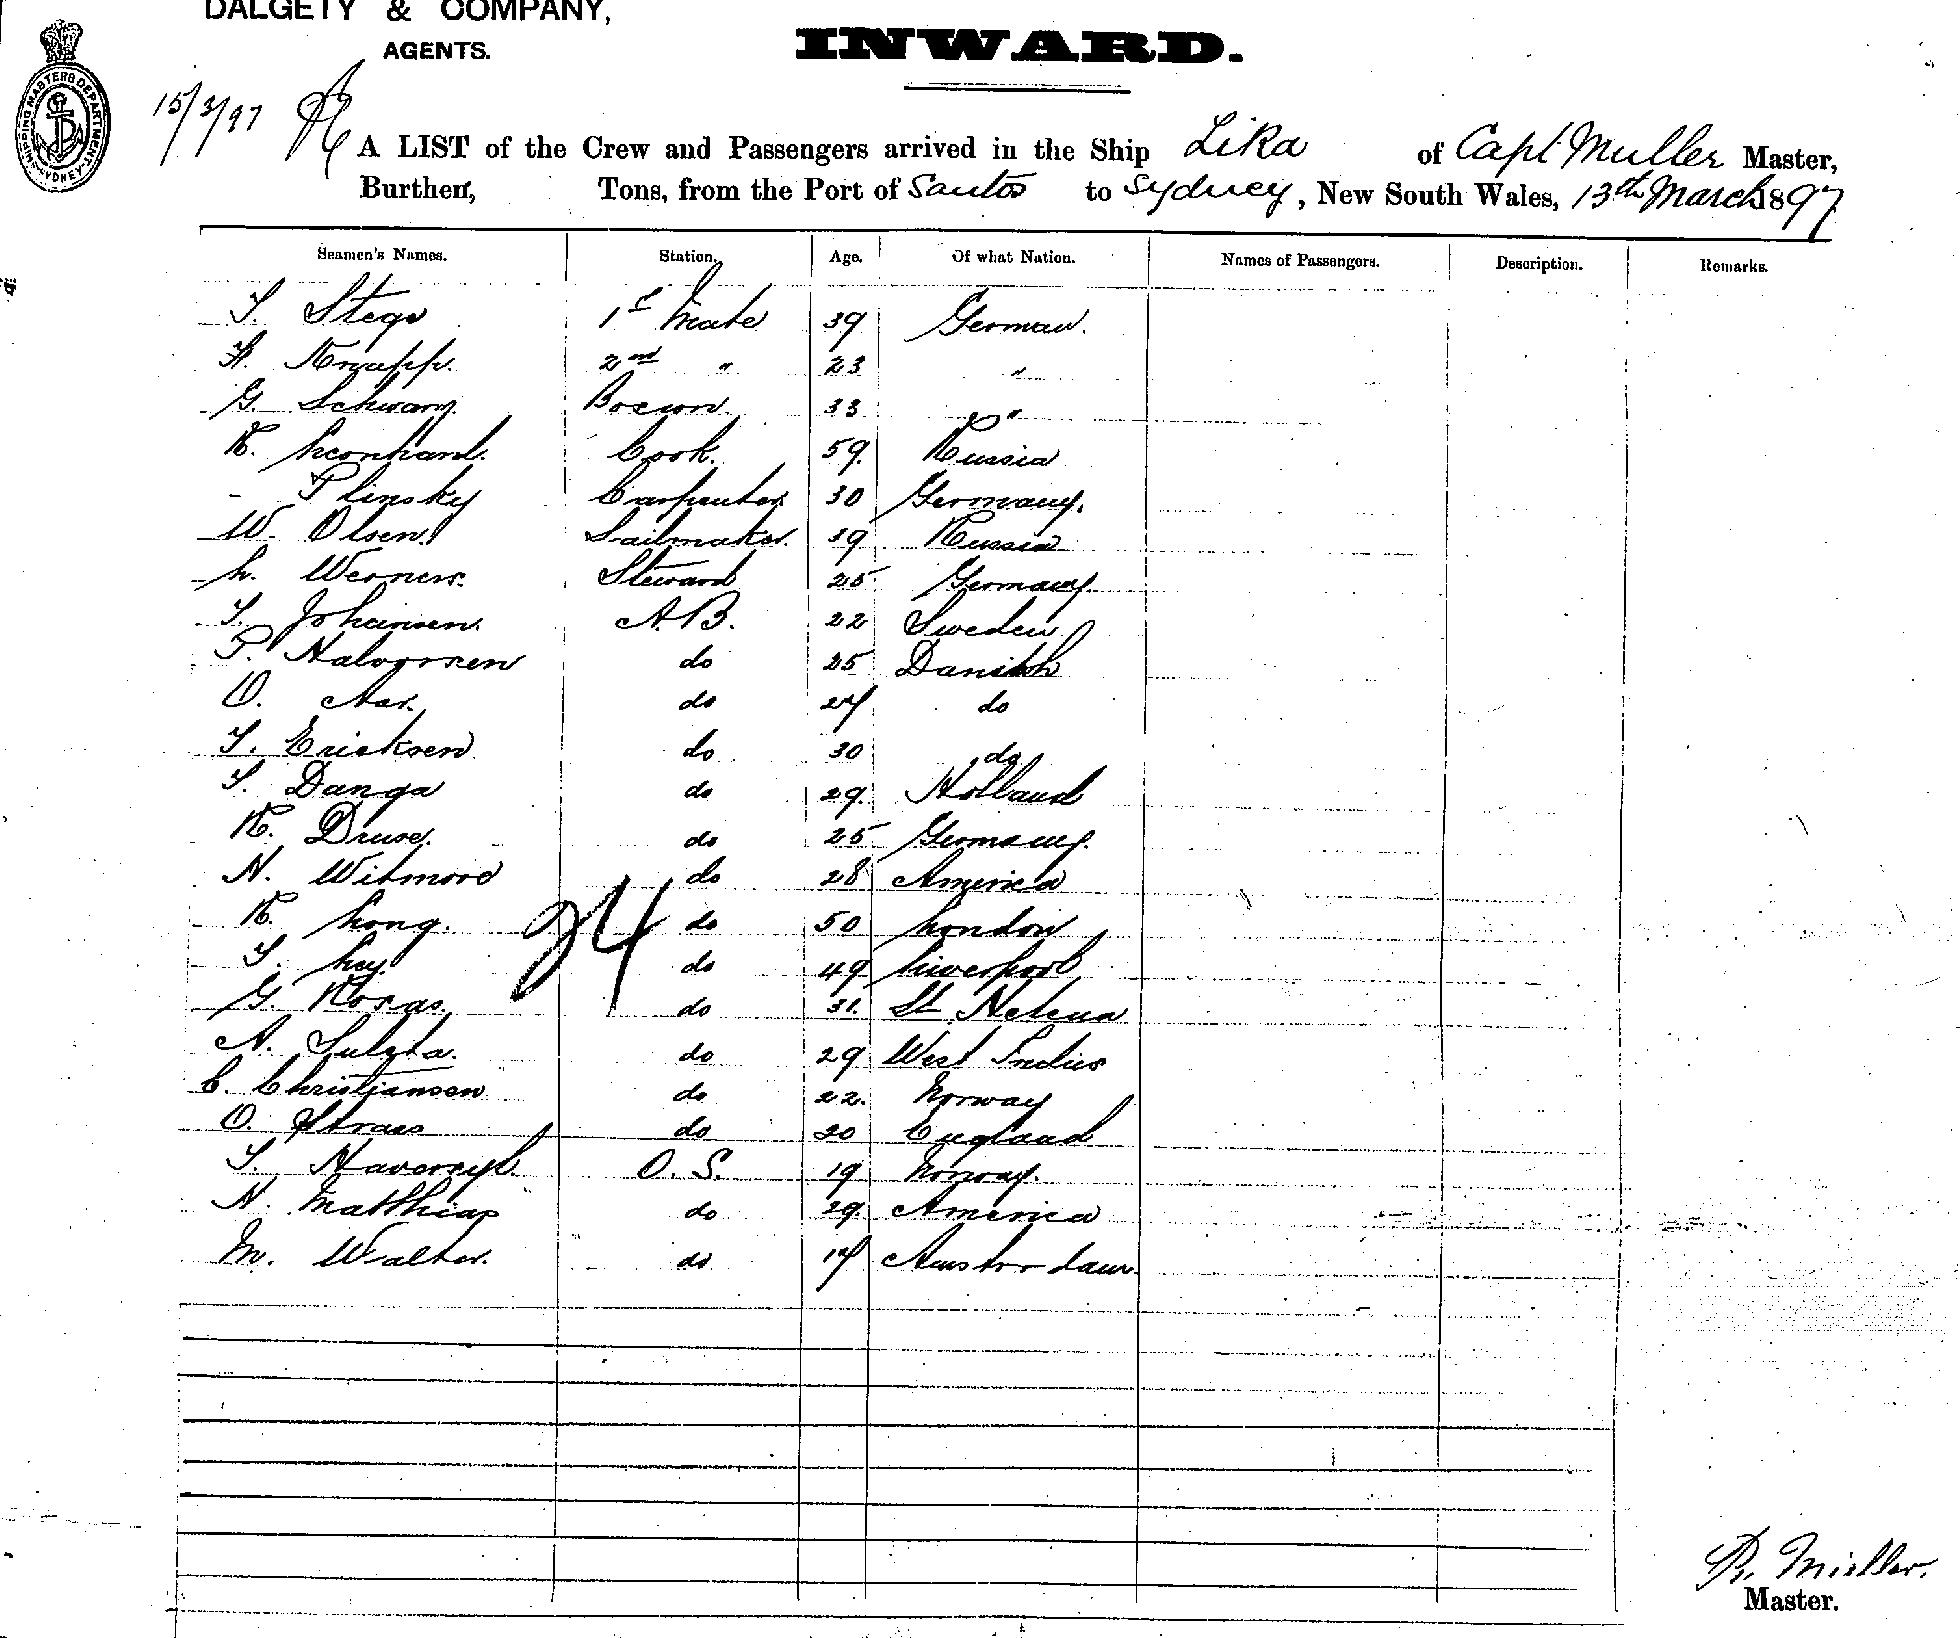 DALGETY & COMPANY,
AGENTS.
INWARD.
SHIPPING MASTERS DEPARTMENT SYDNEY
15/3/97
A LIST of the Crew and Passengers arrived in the Ship Lika of Capt Muller Master,
Burthen, Tons, from the Port of Santos to Sydney, New South Wales, 13th March 1897
Seamen's Names. Station. Age. Of what Nation. Names of Passengers. Description. Remarks.
Stege 1st Mate 39 German.
H. Knapp. 2nd " 23 "
G. Schwarz Bosun 33 "
K. Leonhard. Cook. 59 Russia
Plinsky Carpenter 30 Germany.
W. Olsen. Sailmaker. 39 Russia
L. Werner. Steward 25 Germany
J. Johansen. A.B. 22 Sweden
P. Halvorsen do 25 Danish
O. Aas. do 27 do
J. Ericksen do 30 do
J. Danga do 29 Holland
K. Druse. do 25 Germany.
H. Witmore do 28 America
K. Long. do 50 London
J. Ley. do 49 Liverpool
G. Rosas. do 31. St Helena
A. do 29 West Indies
C. Christjansen do 22. Norway
O. Straes do 20 England
J. O. S. 19 Norway.
H. Matthias do 29 America
M. Walter. do 17
24
R. Müller.
Master.